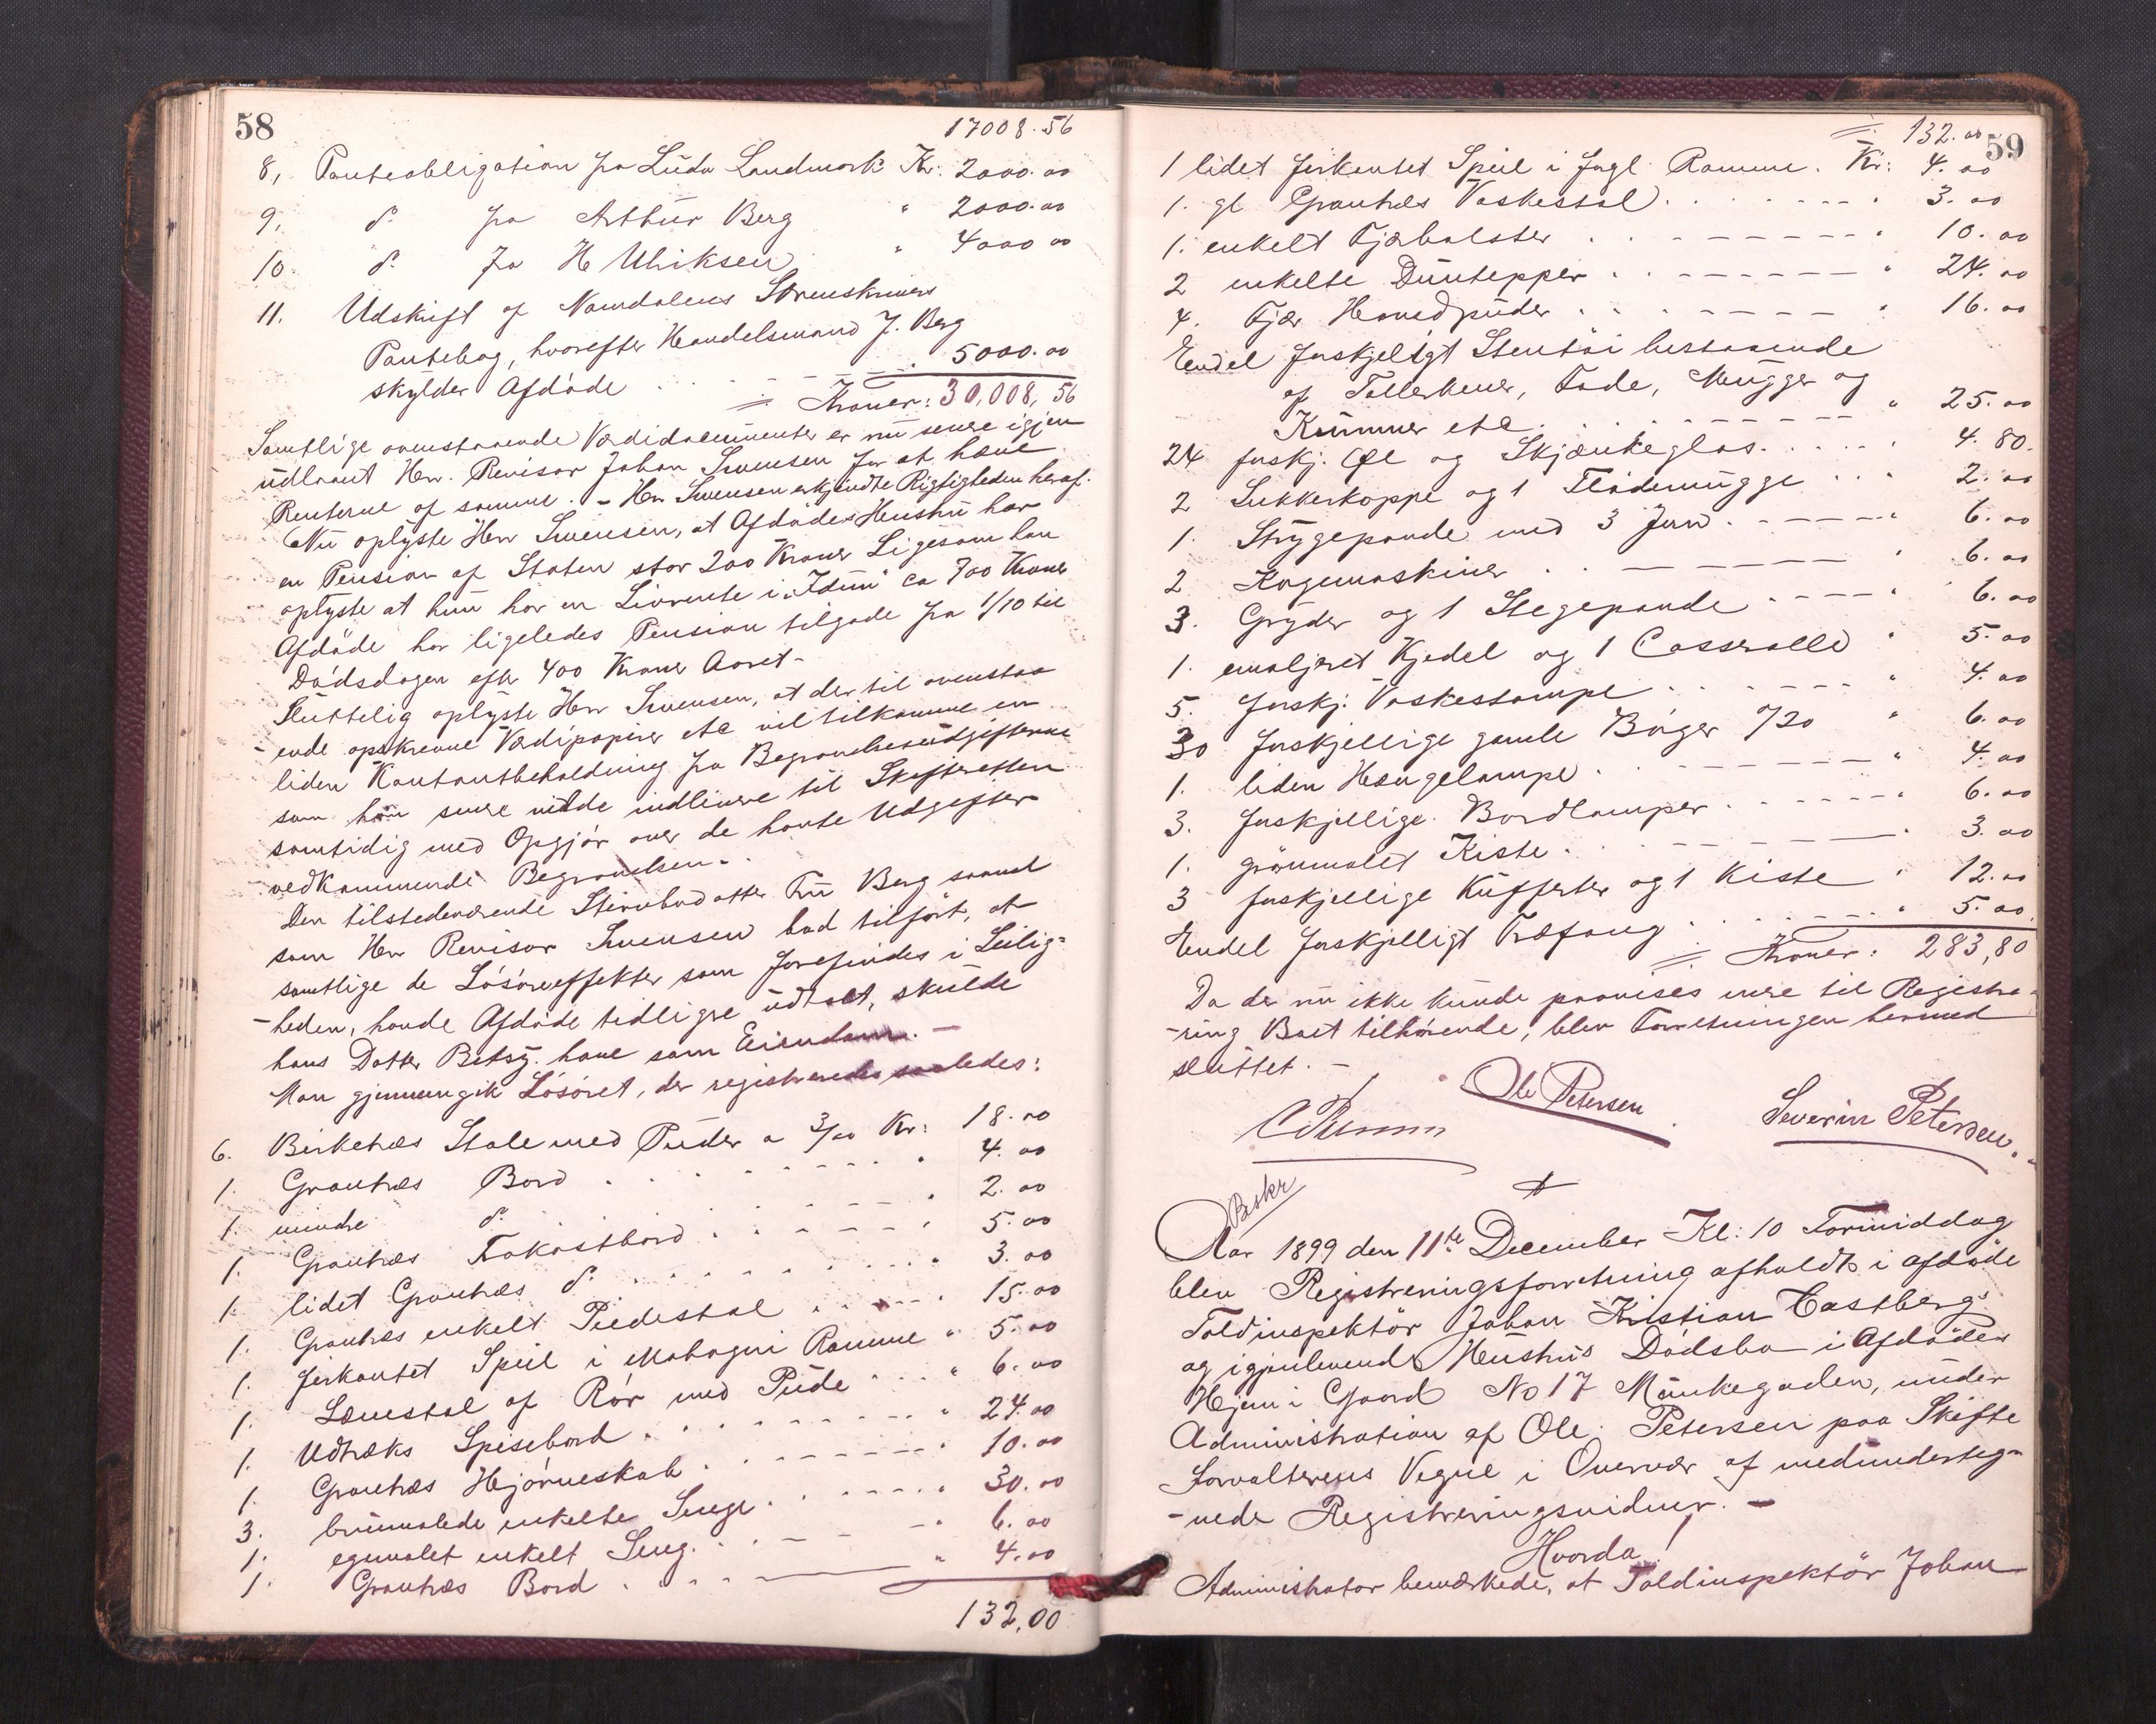 58
17008.56
8, Panteobligation fra Luda Landmark Kr: 2000.00
9, do. fra Arthur Berg " 2000.00
10. do. fra H Ulriksen " 4000 00
11. Udskrift af Namdalens Sorenskrivers
Pantebog, hvorefter Handelsmand J. Berg
skylder Afdöde . . . 5000.00
Kroner: 30,008,56
Samtlige ovenstaaende Værdidocumenter er nu senere igjen
udlaant Herr. Revisor Johan Svensen for at hæve
Renterne af samme. - Herr Svensen erkjendte Rigtigheden heraf.
Nu oplyste Herr Svensen, at Afdödes Hustru har
en Pension af Staten stor 200 Kroner Ligesom han
oplyste at hun har en Livrente i "Idun" ca 700 Kroner
Afdöde har ligeledes Pension tilgode fra 1/10 til
Dödsdagen efter 400 Kroner Aaret-
Sluttelig oplyste Herr Svensen, at der til ovenstaa
ende opskrevne Værdipapirer etc vil tilkomme en
liden Kontantbeholdning fra Begravelsesudgifterne
som han senere vilde indlevere til Skifteretten
samtidig med Opgjör over de havte Udgifter
vedkommende Begravelsen-
Den tilstedeværende Stervbodatter Fru Berg saavel
som Herr Revisor Svensen bad tilfört, at
samtlige de Lösöreeffekter som forefindes i Leilig=
-heden, havde Afdöde tidligere udtalt, skulde
hans Datter Betsy. have som Eiendom. -
Man gjennemgik Lösöret, der registreredes saaledes:
6. Birketræs Stole med Puder a 3/00 Kr: 18.00
1. Grantræs Bord . . . " 4.00
1. mindre do. . . . " 2.00
1. Grantræs Frokostbord . . . " 5.00
1. lidet Grantræs do. . . . " 3.00
1. Grantræs enkelt Piedestal . . . " 15.00
1. firkantet Speil i Mahogni Ramme " 5.00
1. Lænestol af Rör med Pude . . . " 6.00
1. Udtræks Spisebord . . . " 24.00
1. Grantræs Hjörneskab . . . " 10.00
3. brunmalede enkelte Senge . . . " 30.00
1. egemalet enkelt Seng. . . . " 6.00
1. Grantræs Bord . . . " 4.00
132,00
59
132.00
1 lidet firkantet Speil i forgl Ramme. Kr: 4.00
1. gl Grantræs Vaskestol . . . " 3.00
1. enkelt Fjærbolster . . . " 10.00
2 enkelte Duntepper . . . " 24.00
4. Fjær Hovedpuder . . . " 16.00
Endel forskjeligt Stentöi bestaaende
af Tallerkener, Fade, Mugger og
Krummer etc. . . . " 25.00
24 forskj. Øl og Skjænkeglas. . . . " 4.80.
2 Sukkerkoppe og 1 Flödemugge . . . " 2.00
1. Strygepande med 3 Jern . . . " 6.00
2 Kogemaskiner . . . " 6.00
3. Gryder og 1 Stegepande . . . " 6.00
1. emaljeret Kjedel og 1 Casserolle " 5.00
5. forskj. Vaskestampe . . . " 4.00
30 forskjellige gamle Böger a/20 " 6.00
1. liden Hængelampe . . . " 4.00
3. forskjellige Bordlamper . . . " 6.00
1. grönmalet Kiste . . . " 3.00
3 forskjellige Kufferter og 1 Kiste " 12.00
Endel forskjelligt Træfang . . . " 5.00.
Kroner: 283,80
Da der nu ikke kunde paavises mere til Registre-
-ring Boet tilhörende, blev Forretningen hermed
sluttet. -
Ole Petersen
Severin Petersen.
Beskr
Aar 1899 den 11te December Kl: 10 Formiddag
blev Registreringsforretning afholdt i afdöde
Toldinspektör Johan Kristian Castbergs
og igjenlevende Hustrus Dödsbo i Afdödes
Hjem i Gaard No 17 Munkegaden, under
Administration af Ole Petersen paa Skifte
forvalterens Vegne i Overvær af medunderteg-
-nede Registreringsvidner. -
Hvorda!
Administrator bemærkede, at Toldinspektör Johan